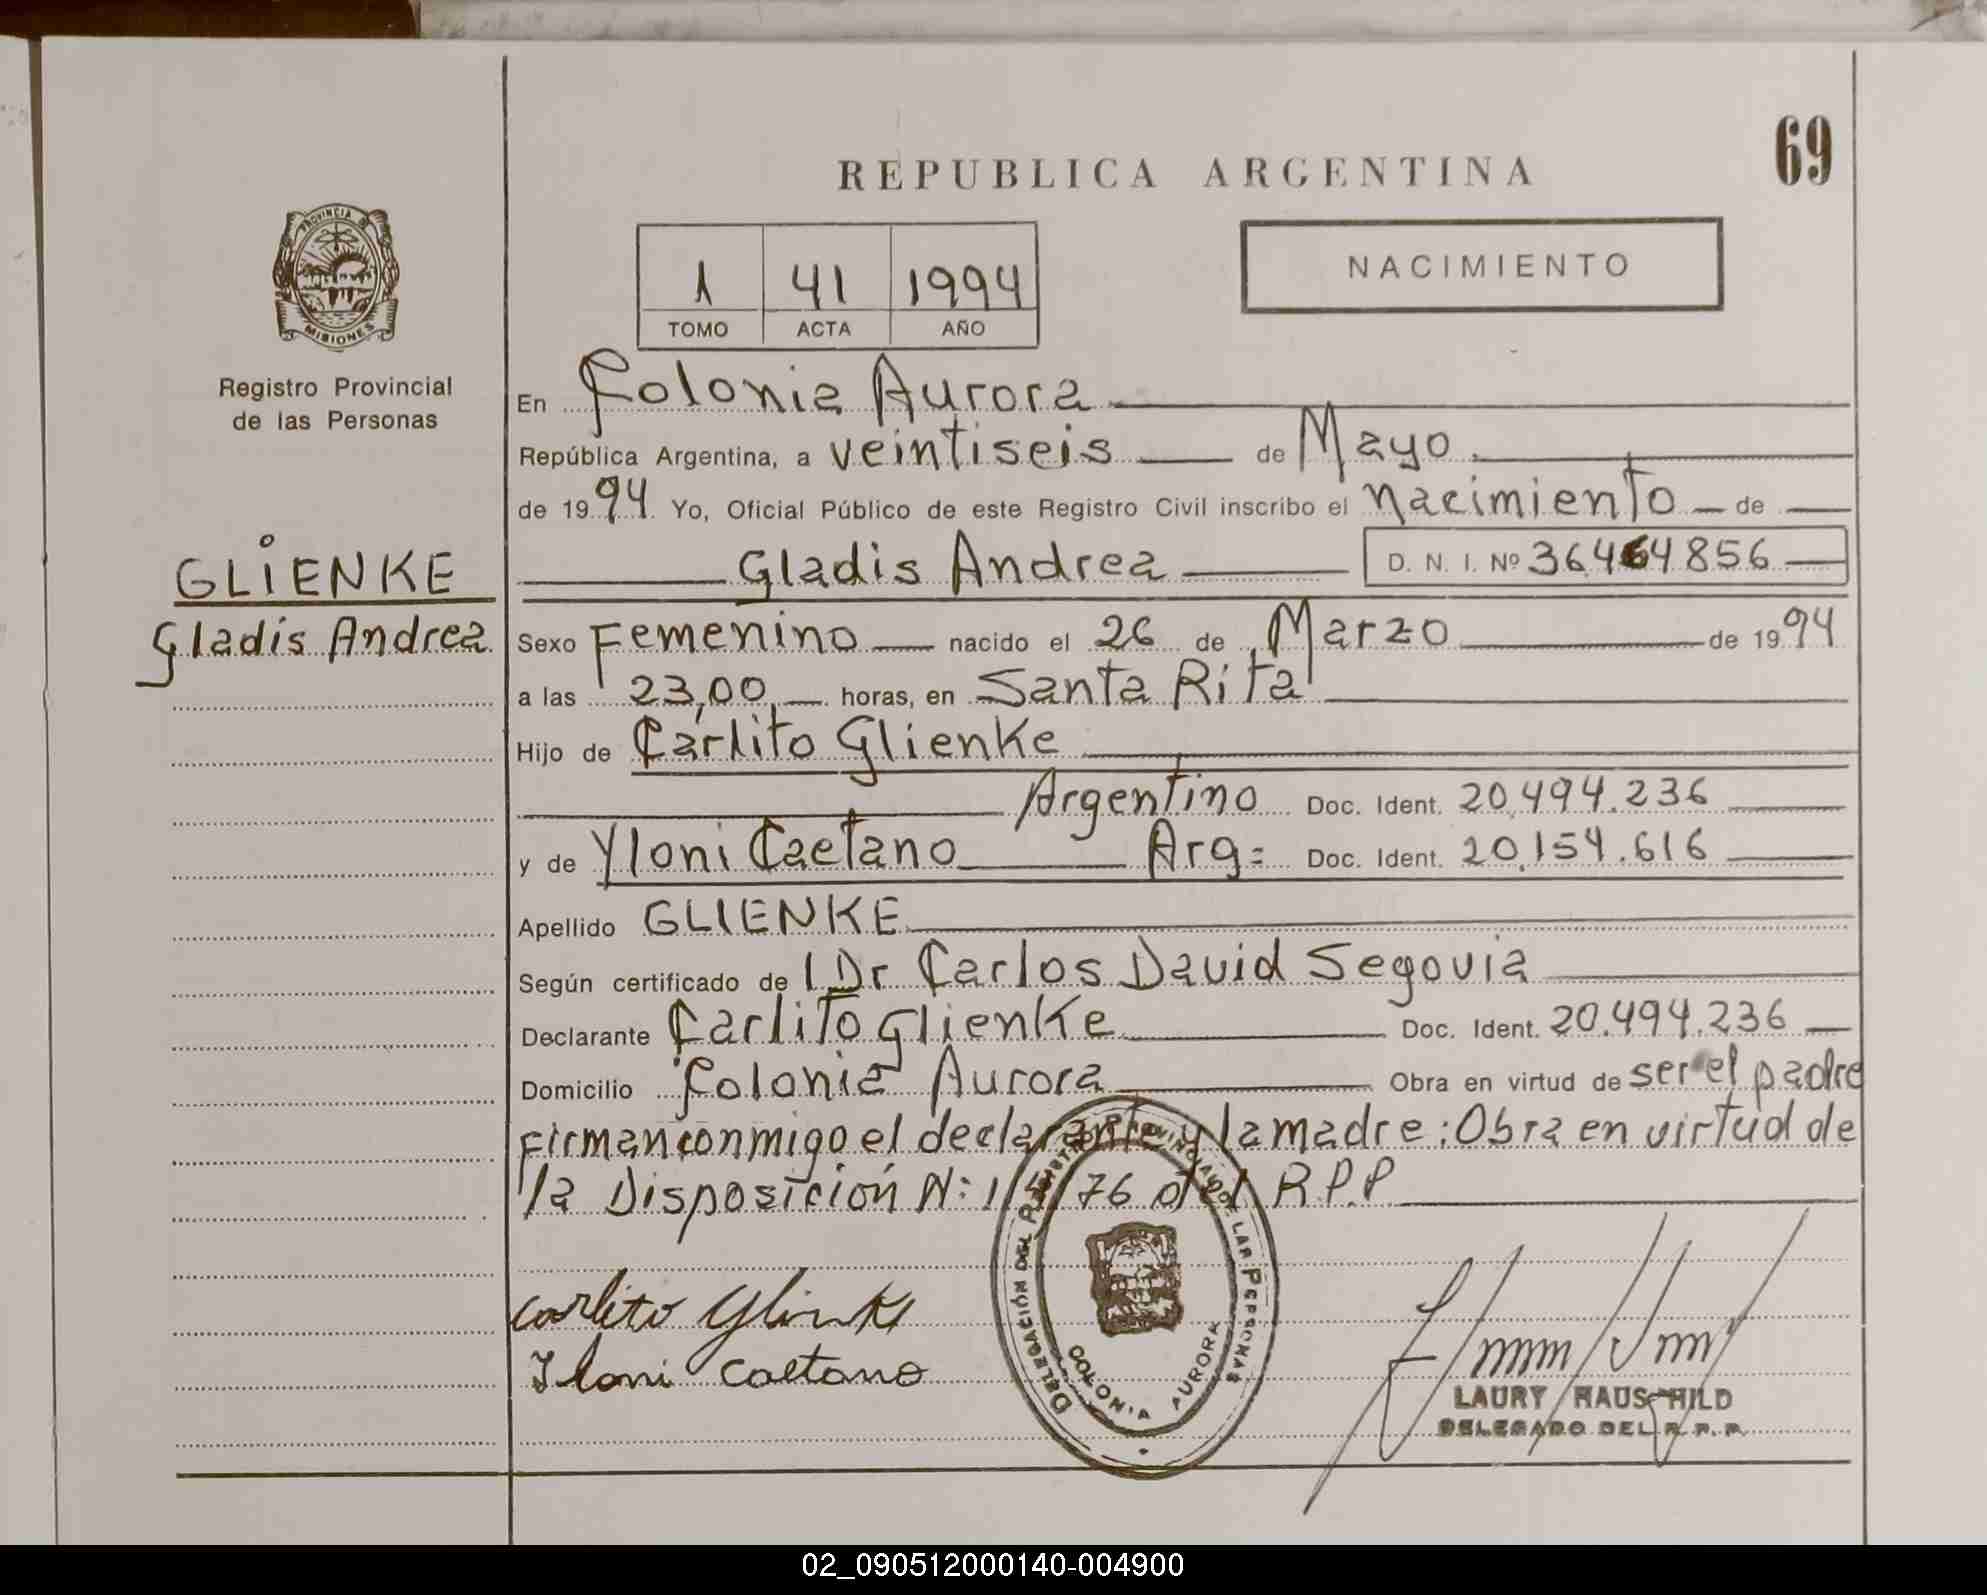 69
REPUBLICA ARGENTINA
PROVINCIA DE
MISIONES
Registro Provincial
de las Personas
1 41 1994
TOMO ACTA AÑO
NACIMIENTO
En Colonia Aurora
República Argentina, a veintiseis de Mayo
de 1994 Yo, Oficial Público de este Registro Civil inscribo el Nacimiento de
Gladis Andrea D. N. I. Nº 36464856
GLIENKE
Gladis Andrea
Sexo Femenino nacido el 26 de Marzo de 1994
a las 23,00 horas, en Santa Rita
Hijo de Carlito Glienke
Argentino Doc. Ident. 20.494.236
y de Yloni Caetano Arg= Doc. Ident. 20.154.616
Apellido GLIENKE
Según certificado de l Dr Carlos David Segovia
Declarante Carlito Glienke Doc. Ident. 20.494.236
Domicilio Colonia Aurora Obra en virtud de ser el padre
Firman conmigo el declarante y la madre: Obra en virtud de
la Disposición N: del R.P.P
Carlito Glinke
Iloni Caetano
DELEGACIÓN DEL REGISTRO PROVINCIAL DE LAS PERSONAS
COLONIA AURORA
LAURY HAUSCHILD
DELEGADO DEL R.P.P.
02_090512000140-004900